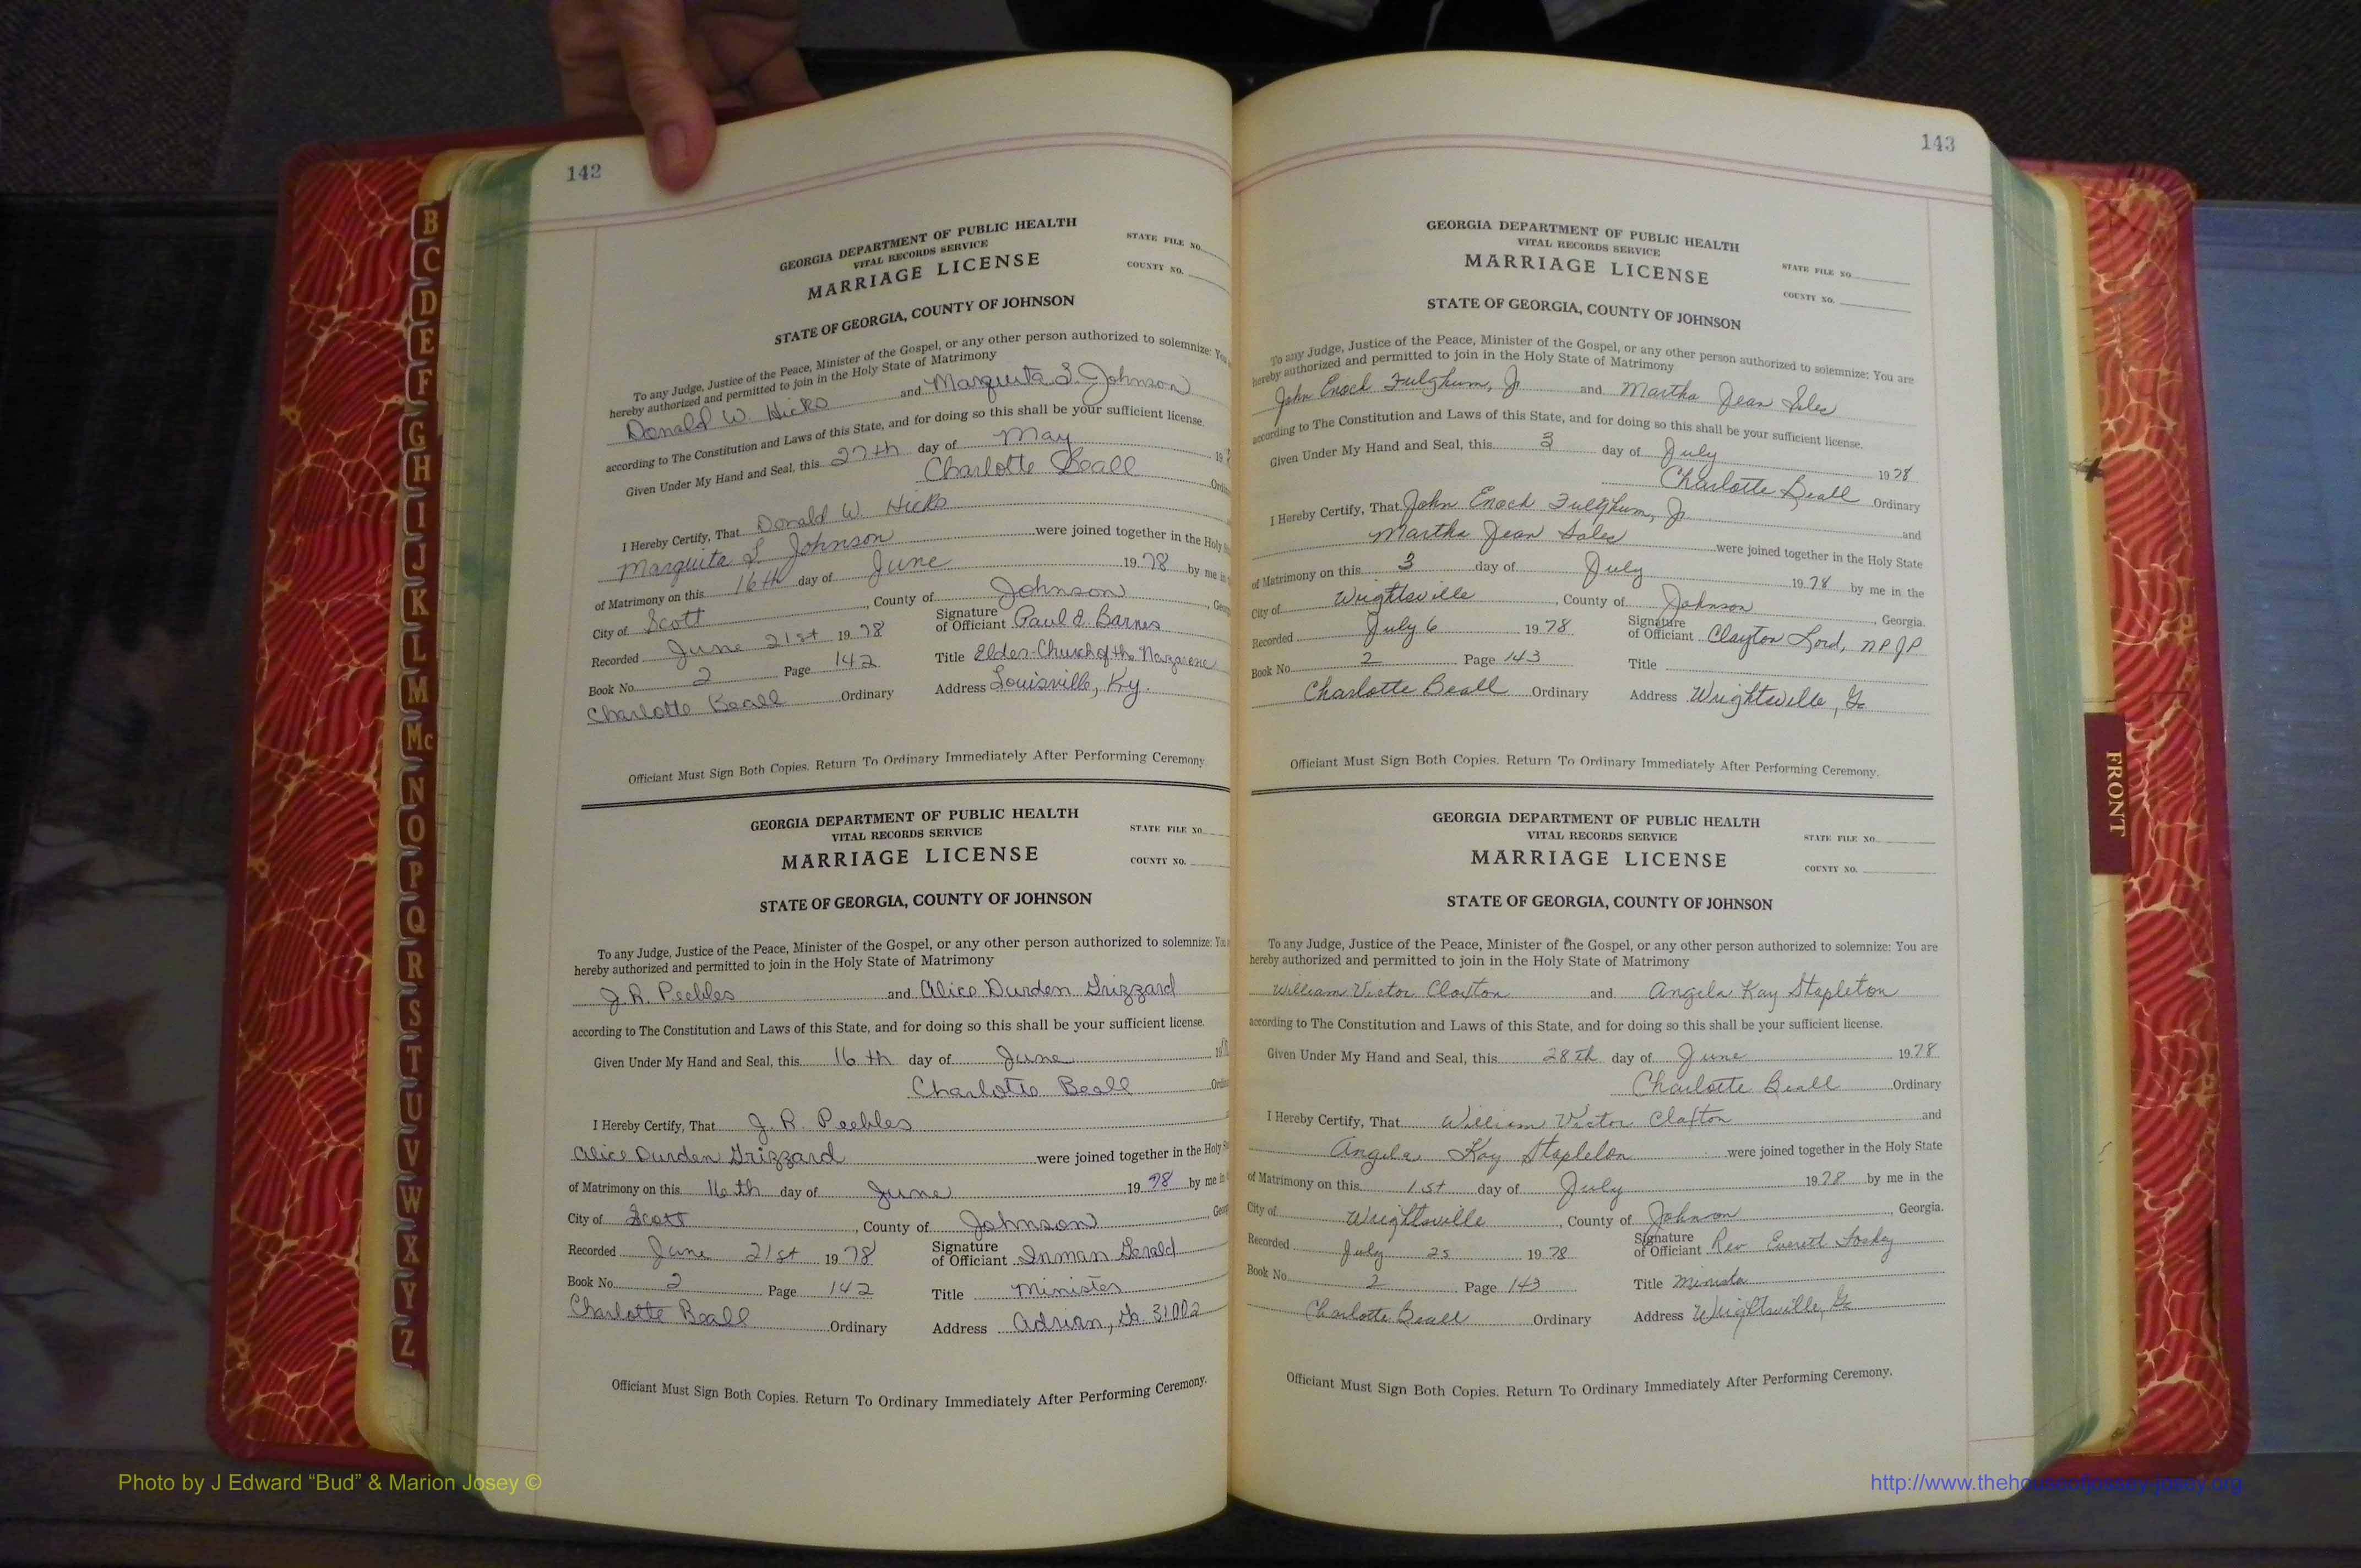 142
GEORGIA DEPARTMENT OF PUBLIC HEALTH
VITAL RECORDS SERVICE
MARRIAGE LICENSE
STATE FILE NO.
COUNTY NO.
STATE OF GEORGIA, COUNTY OF JOHNSON
To any Judge, Justice of the Peace, Minister of the Gospel, or any other person authorized to solemnize: You
hereby authorized and permitted to join in the Holy State of Matrimony
Donald W. Hicks and Marquita S. Johnson
according to The Constitution and Laws of this State, and for doing so this shall be your sufficient license.
Given Under My Hand and Seal, this 27th day of May 19
Charlotte Beall
I Hereby Certify, That Donald W. Hicks
Marquita S. Johnson were joined together in the Holy
of Matrimony on this 16th day of June 1978 by me in
City of Scott, County of Johnson
Recorded June 21st 1978 Signature of Officiant Paul A. Barnes
Book No. 2 Page 142 Title Elder-Church of the Nazarene
Charlotte Beall Ordinary Address Louisville, Ky.
Officiant Must Sign Both Copies. Return To Ordinary Immediately After Performing Ceremony.
GEORGIA DEPARTMENT OF PUBLIC HEALTH
VITAL RECORDS SERVICE
MARRIAGE LICENSE
STATE FILE NO.
COUNTY NO.
STATE OF GEORGIA, COUNTY OF JOHNSON
To any Judge, Justice of the Peace, Minister of the Gospel, or any other person authorized to solemnize: You
hereby authorized and permitted to join in the Holy State of Matrimony
J. R. Peebles and Alice Durden Grizzard
according to The Constitution and Laws of this State, and for doing so this shall be your sufficient license.
Given Under My Hand and Seal, this 16th day of June 19
Charlotte Beall
I Hereby Certify, That J. R. Peebles
Alice Durden Grizzard were joined together in the Holy
of Matrimony on this 16th day of June 1978 by me in
City of Scott, County of Johnson
Recorded June 21st 1978 Signature of Officiant Inman Gerald
Book No. 2 Page 142 Title Minister
Charlotte Beall Ordinary Address Adrian, Ga. 31002
Officiant Must Sign Both Copies. Return To Ordinary Immediately After Performing Ceremony.
143
GEORGIA DEPARTMENT OF PUBLIC HEALTH
VITAL RECORDS SERVICE
MARRIAGE LICENSE
STATE FILE NO.
COUNTY NO.
STATE OF GEORGIA, COUNTY OF JOHNSON
To any Judge, Justice of the Peace, Minister of the Gospel, or any other person authorized to solemnize: You are
hereby authorized and permitted to join in the Holy State of Matrimony
John Enoch Fulghum, Jr and Martha Jean Sales
according to The Constitution and Laws of this State, and for doing so this shall be your sufficient license.
Given Under My Hand and Seal, this 3 day of July 1978
Charlotte Beall Ordinary
I Hereby Certify, That John Enoch Fulghum, Jr and
Martha Jean Sales were joined together in the Holy State
of Matrimony on this 3 day of July 1978 by me in the
City of Wrightsville, County of Johnson, Georgia.
Recorded July 6 1978 Signature of Officiant Clayton Lord, NP JP
Book No. 2 Page 143 Title
Charlotte Beall Ordinary Address Wrightsville, Ga
Officiant Must Sign Both Copies. Return To Ordinary Immediately After Performing Ceremony.
GEORGIA DEPARTMENT OF PUBLIC HEALTH
VITAL RECORDS SERVICE
MARRIAGE LICENSE
STATE FILE NO.
COUNTY NO.
STATE OF GEORGIA, COUNTY OF JOHNSON
To any Judge, Justice of the Peace, Minister of the Gospel, or any other person authorized to solemnize: You are
hereby authorized and permitted to join in the Holy State of Matrimony
William Victor Claxton and Angela Kay Stapleton
according to The Constitution and Laws of this State, and for doing so this shall be your sufficient license.
Given Under My Hand and Seal, this 28th day of June 1978
Charlotte Beall Ordinary
I Hereby Certify, That William Victor Claxton and
Angela Kay Stapleton were joined together in the Holy State
of Matrimony on this 1st day of July 1978 by me in the
City of Wrightsville, County of Johnson, Georgia.
Recorded July 25 1978 Signature of Officiant Rev Everett
Book No. 2 Page 143 Title Minister
Charlotte Beall Ordinary Address Wrightsville, Ga
Officiant Must Sign Both Copies. Return To Ordinary Immediately After Performing Ceremony.
B
C
D
E
F
G
H
I
J
K
L
M
Mc
N
O
P
Q
R
S
T
U
V
W
X
Y
Z
FRONT
Photo by J Edward “Bud” & Marion Josey ©
http://www.thehouseofjossey-josey.org